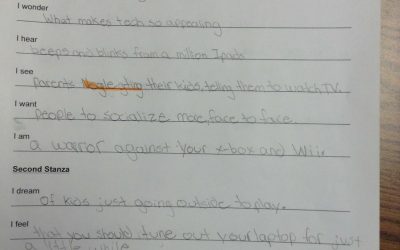 I wonder
What makes tech so appealing
I hear
beeps and blinks from a milion Ipads
I see
Parents Neglegting their kids, telling them to watch TV.
I want
people to socialize more, face to face.
I am
a warror against your x-box and Wii.
Second Stanza
I dream
of kids just going outside to play.
I feel
that you should tune out your laptop for just
a little while